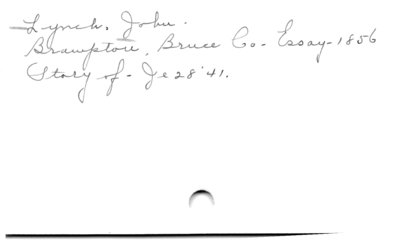 Lynch, John.
Brampton, Bruce Co. - Essay - 1856
Story of - Je 28 '41.